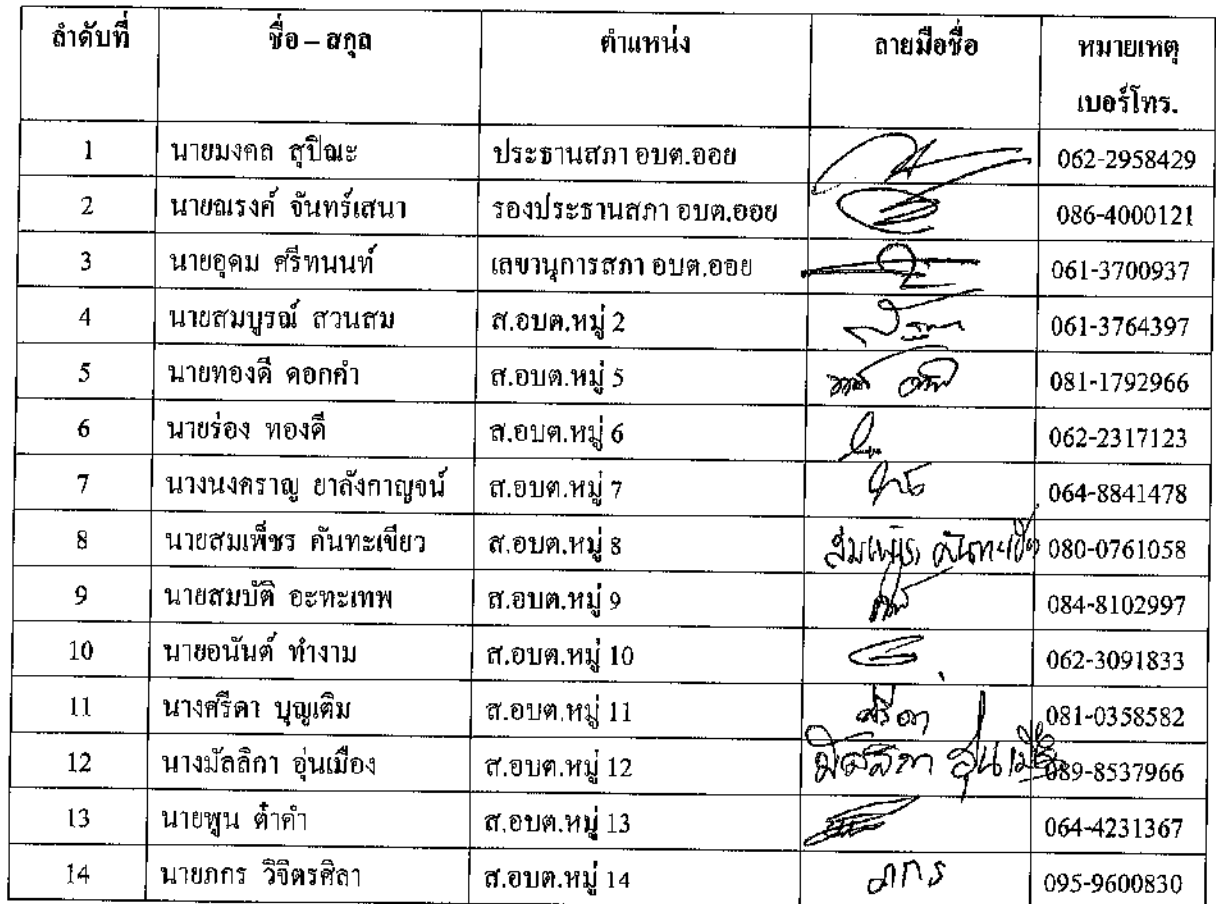 ลำดับที่ ชื่อ – สกุล ตำแหน่ง ลายมือชื่อ หมายเหตุ
เบอร์โทร.
1 นายมงคล สุปิณะ ประธานสภา อบต.ออย 062-2958429
2 นายณรงค์ จันทร์เสนา รองประธานสภา อบต.ออย 086-4000121
3 นายอุดม ศรีทนนท์ เลขานุการสภา อบต.ออย 061-3700937
4 นายสมบูรณ์ สวนสม ส.อบต.หมู่ 2 061-3764397
5 นายทองดี ดอกคำ ส.อบต.หมู่ 5 081-1792966
6 นายร่อง ทองดี ส.อบต.หมู่ 6 062-2317123
7 นางนงคราญ ยาลังกาญจน์ ส.อบต.หมู่ 7 064-8841478
8 นายสมเพ็ชร คันทะเขียว ส.อบต.หมู่ 8 สมเพ็ชร คันทะเขียว 080-0761058
9 นายสมบัติ อะทะเทพ ส.อบต.หมู่ 9 084-8102997
10 นายอนันต์ ทำงาม ส.อบต.หมู่ 10 062-3091833
11 นางศรีดา บุญเติม ส.อบต.หมู่ 11 ศรีดา 081-0358582
12 นางมัลลิกา อุ่นเมือง ส.อบต.หมู่ 12 มัลลิกา อุ่นเมือง 089-8537966
13 นายพูน ต๊ะคำ ส.อบต.หมู่ 13 064-4231367
14 นายภกร วิจิตรศิลา ส.อบต.หมู่ 14 ภกร 095-9600830